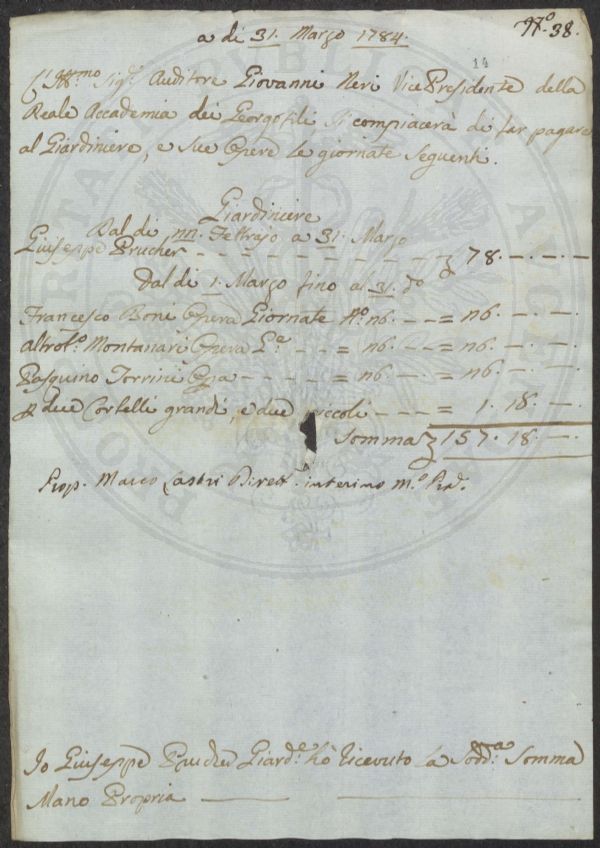 N.º 38.
a di 31. Marzo 1784.
14
L'Ill.mo Sig.r Auditore Giovanni Neri Vice Presidente della
Reale Accademia dei Georgofili si compiacerà di far pagare
al Giardiniere, e sue Opere le giornate seguenti.
Giardiniere
Dal di Febbrajo a 31. Marzo
Giuseppe Prucher - - - - - - - - - - - 78. - . - . -
Dal di 1. Marzo fino al 31. do
Francesco Boni Opera Giornate N.º 26. - - = 26. - . - .
Montanari Opera - - - = 26. - - = 26. - . - .
Pasquino Torrini - - - - = 26. - - = 26. - . - .
due Corbelli grandi, e due piccoli - - - = 1. 18. -
Somma 157. 18. - .
Prop. Marco Lastri Dirett. interino m.º pr.a
Io Giuseppe Prucher Giard.e hò ricevuto la Sodd.a Somma
Mano Propria
PRO PUBLICA